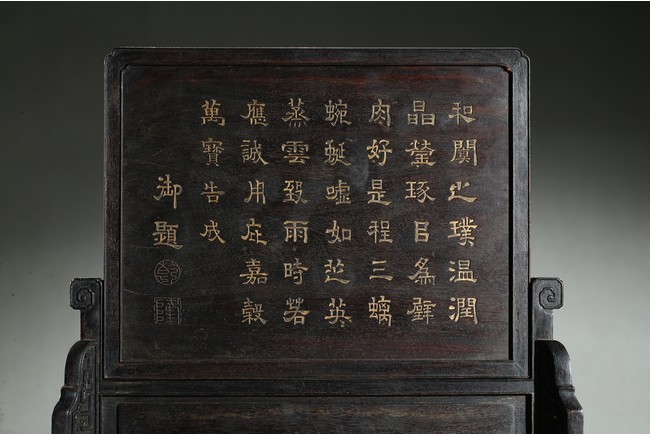 和闐之璞温潤
晶瑩琢㠯為璧
肉好是程三螭
蜿蜒噓如芝英
蒸雲致雨時若
應誠用庇嘉穀
萬寶告成
御題
乾
隆